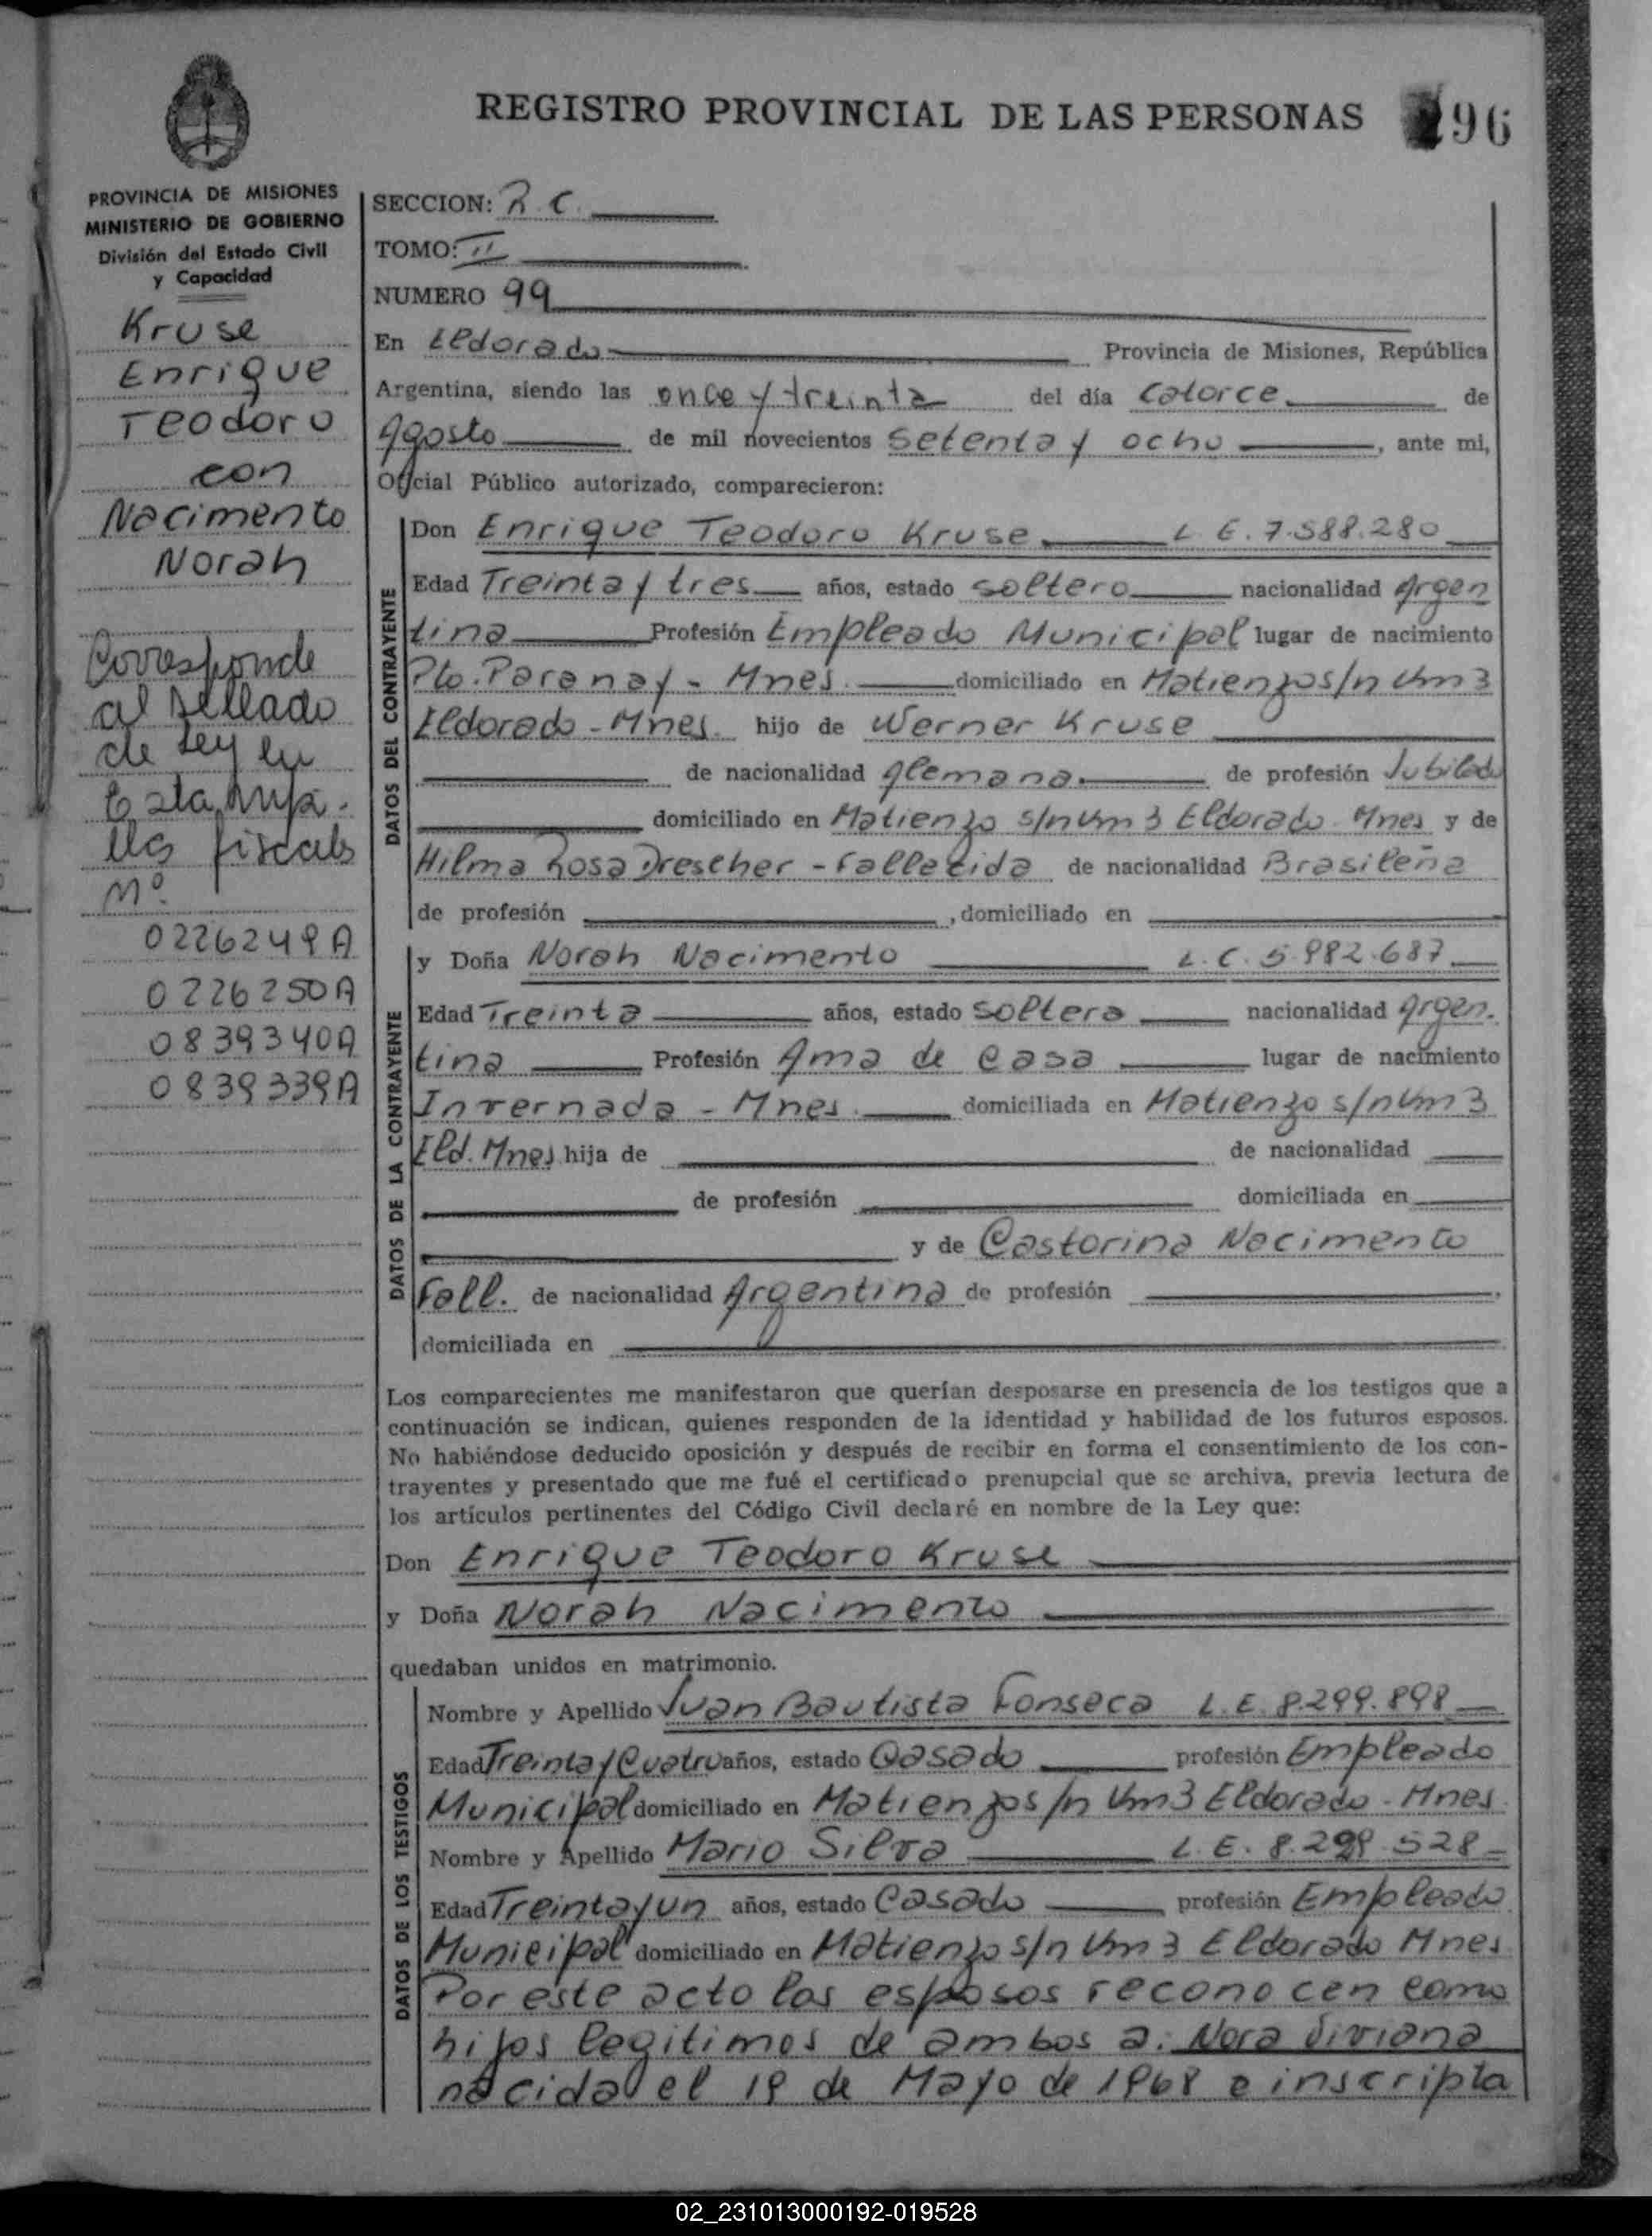 REGISTRO PROVINCIAL DE LAS PERSONAS
296
PROVINCIA DE MISIONES
MINISTERIO DE GOBIERNO
División del Estado Civil
y Capacidad
Kruse
Enrique
Teodoro
con
Nacimento
Norah
Corresponde
al Sellado
de Ley en
Estampi-
llas fiscales
Nº
0226249A
0226250A
0839340A
0839339A
SECCION: R. C.
TOMO: II
NUMERO 99
En Eldorado Provincia de Misiones, República
Argentina, siendo las once y treinta del día Catorce de
Agosto de mil novecientos setenta y ocho, ante mi,
Oficial Público autorizado, comparecieron:
DATOS DEL CONTRAYENTE
Don Enrique Teodoro Kruse L. E. 7.588.280
Edad Treinta y tres años, estado soltero nacionalidad Argen
tina Profesión Empleado Municipal lugar de nacimiento
Pto. Paranay - Mnes. domiciliado en Matienzo s/n Km 3
Eldorado - Mnes. hijo de Werner Kruse
de nacionalidad Alemana de profesión Jubilado
domiciliado en Matienzo s/n Km 3 Eldorado Mnes y de
Hilma Rosa Drescher - Fallecida de nacionalidad Brasileña
de profesión , domiciliado en
DATOS DE LA CONTRAYENTE
y Doña Norah Nacimento L. C. 5.982.687
Edad Treinta años, estado soltera nacionalidad Argen.
tina Profesión Ama de Casa lugar de nacimiento
Invernada - Mnes. domiciliada en Matienzo s/n Km 3
Eld. Mnes hija de de nacionalidad
de profesión domiciliada en
y de Castorina Nacimento
Fall. de nacionalidad Argentina de profesión ,
domiciliada en
Los comparecientes me manifestaron que querían desposarse en presencia de los testigos que a
continuación se indican, quienes responden de la identidad y habilidad de los futuros esposos.
No habiéndose deducido oposición y después de recibir en forma el consentimiento de los con-
trayentes y presentado que me fué el certificado prenupcial que se archiva, previa lectura de
los artículos pertinentes del Código Civil declaré en nombre de la Ley que:
Don Enrique Teodoro Kruse
y Doña Norah Nacimento
quedaban unidos en matrimonio.
DATOS DE LOS TESTIGOS
Nombre y Apellido Juan Bautista Fonseca L. E. 8.299.898
Edad Treinta y Cuatro años, estado Casado profesión Empleado
Municipal domiciliado en Matienzo s/n Km 3 Eldorado - Mnes.
Nombre y Apellido Mario Silva L. E. 8.299.528
Edad Treinta y un años, estado Casado profesión Empleado
Municipal domiciliado en Matienzo s/n Km 3 Eldorado Mnes
Por este acto los esposos reconocen como
hijos legitimos de ambos a: Nora Viviana
nacida el 19 de Mayo de 1968 e inscripta
02_231013000192-019528